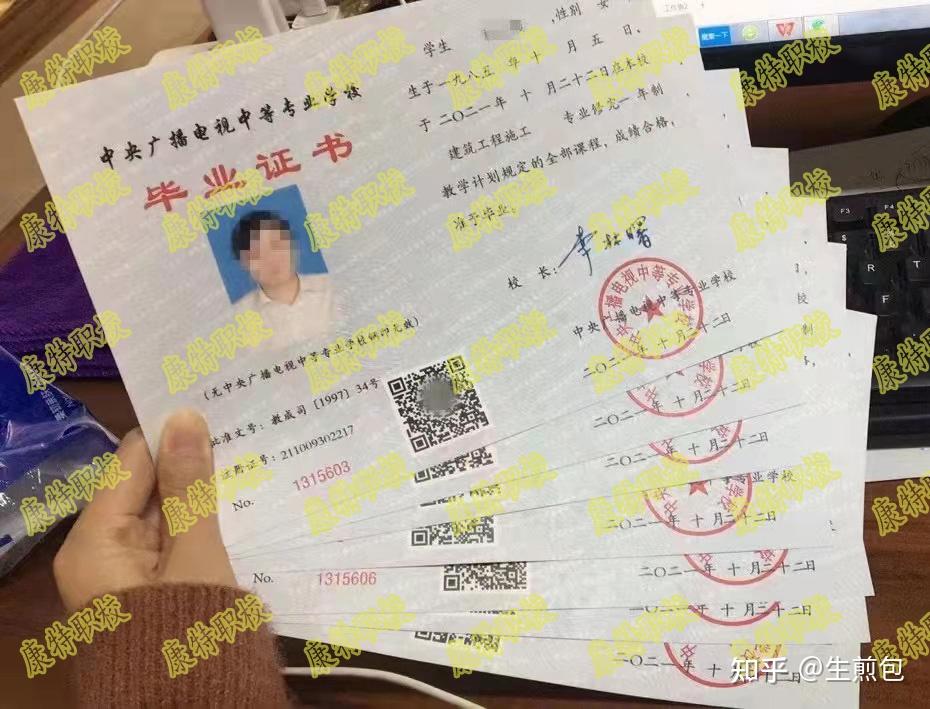 中央广播电视中等专业学校
毕业证书
学生
,性别 女 ,
生于一九八五年十月五日,
于二〇二一年 十 月二十二日在本校
建筑工程施工 专业修完一年制
教学计划规定的全部课程,成绩合格,
准予毕业。
校 长:
中央广播电视中等专业学校
二〇二一年 十 月二十二日
(无中央广播电视中等专业学校钢印无效)
批准文号:教成司[1997]34号
注册证号:211009302217
No. 1315603
校
制
二〇二一年 十 月二十二日
二〇二一年 十 月二十二日
专业学校
二〇二一年 十 月二十二日
No. 1315606
二〇二一年 十 月二十二日
十 月二十二日
二〇二一年 十 月二十二日
康特职校
搜索一下
F3
F4
R
T
F
G
知乎 @生煎包